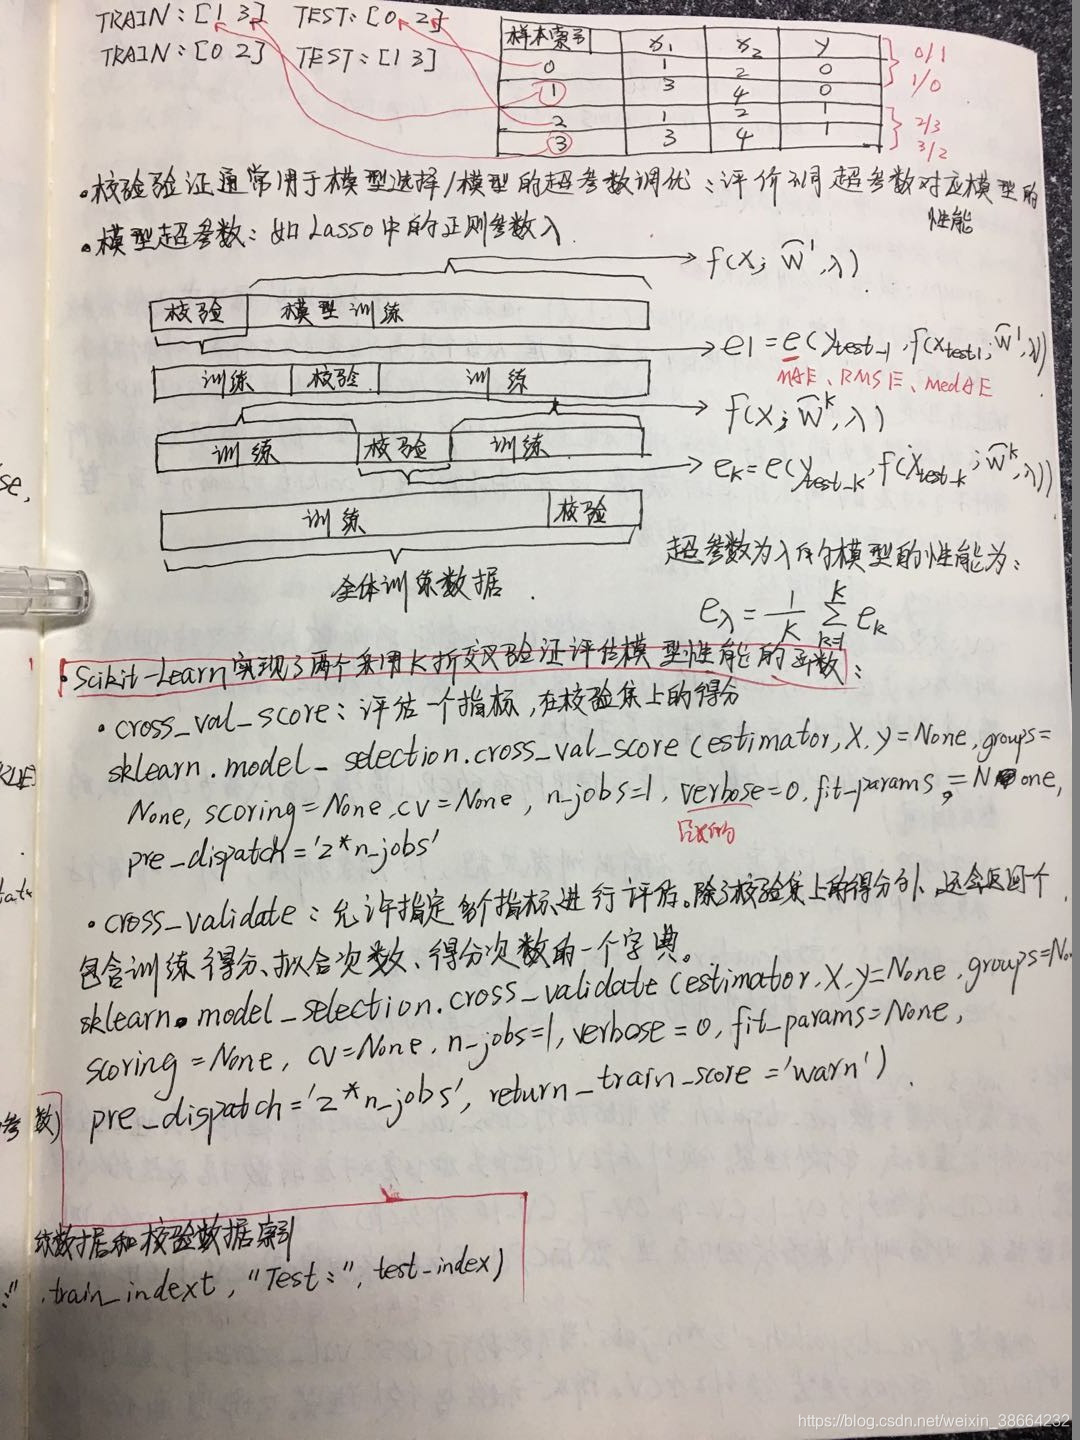 TRAIN:[1 3] TEST:[0 2]
TRAIN:[0 2] TEST:[1 3]
样本索引 x₁ x₂ y
0 1 2 0
1 3 4 0
2 1 2 1
3 3 4 1
0/1
1/0
2/3
3/2
•校验验证通常用于模型选择/模型的超参数调优:评价不同超参数对应模型的
性能
•模型超参数:如Lasso中的正则参数λ
f(X; ŵ¹,λ)
校验 模型训练
e1=e(y_test_1,f(x_test1;ŵ¹,λ))
MAE、RMSE、MedAE
训练 校验 训练
f(X;ŵᵏ,λ)
训练 校验 训练
ek=e(y_test_k,f(x_test_k;ŵᵏ,λ))
训练 校验
全体训练数据
超参数为λ时的模型的性能为:
e_λ=1/K Σ_{k=1}^{K} e_k
•Scikit-Learn实现了两个采用K折交叉验证评估模型性能的函数:
•cross_val_score:评估一个指标,在校验集上的得分
sklearn.model_selection.cross_val_score(estimator,X,y=None,groups=
None,scoring=None,cv=None,n_jobs=1,verbose=0,fit_params=None,
pre_dispatch='2*n_jobs'
•cross_validate:允许指定多个指标进行评估。除了校验集上的得分外、还会返回个
包含训练得分、拟合次数、得分次数的一个字典。
sklearn.model_selection.cross_validate(estimator,X,y=None,groups=No
scoring=None,cv=None,n_jobs=1,verbose=0,fit_params=None,
pre_dispatch='2*n_jobs',return_train_score='warn')
参数)
数据和校验数据索引
:",train_indext,"Test:",test_index)
https://blog.csdn.net/weixin_38664232